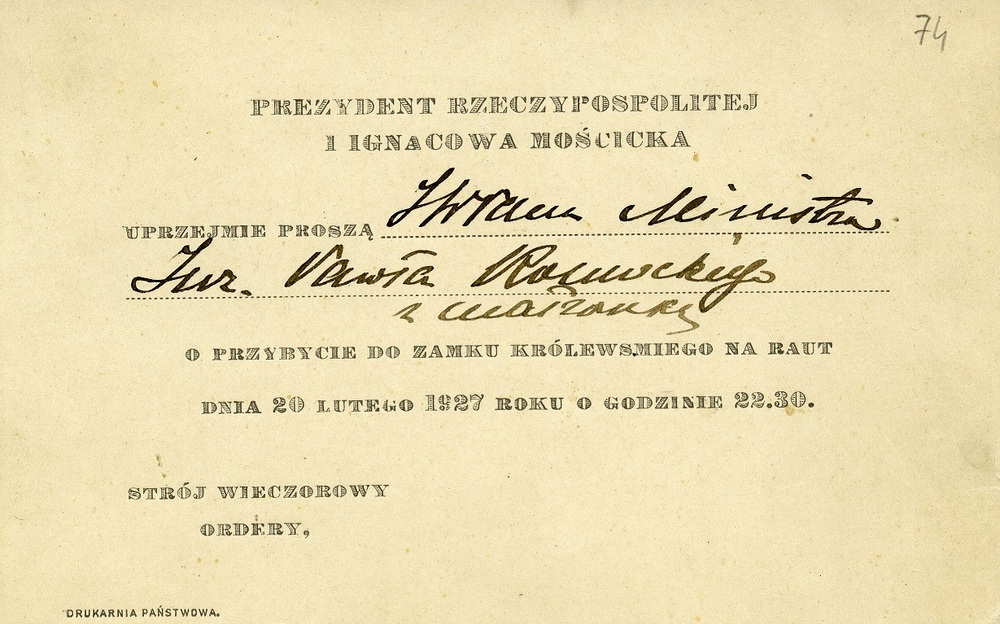 74
PREZYDENT RZECZYPOSPOLITEJ
I IGNACOWA MOŚCICKA
UPRZEJMIE PROSZĄ JWPana Ministra
Inż. Pawła Romockiego
z małżonką
O PRZYBYCIE DO ZAMKU KRÓLEWSMIEGO NA RAUT
DNIA 20 LUTEGO 1927 ROKU O GODZINIE 22.30.
STRÓJ WIECZOROWY
ORDERY,
DRUKARNIA PAŃSTWOWA.